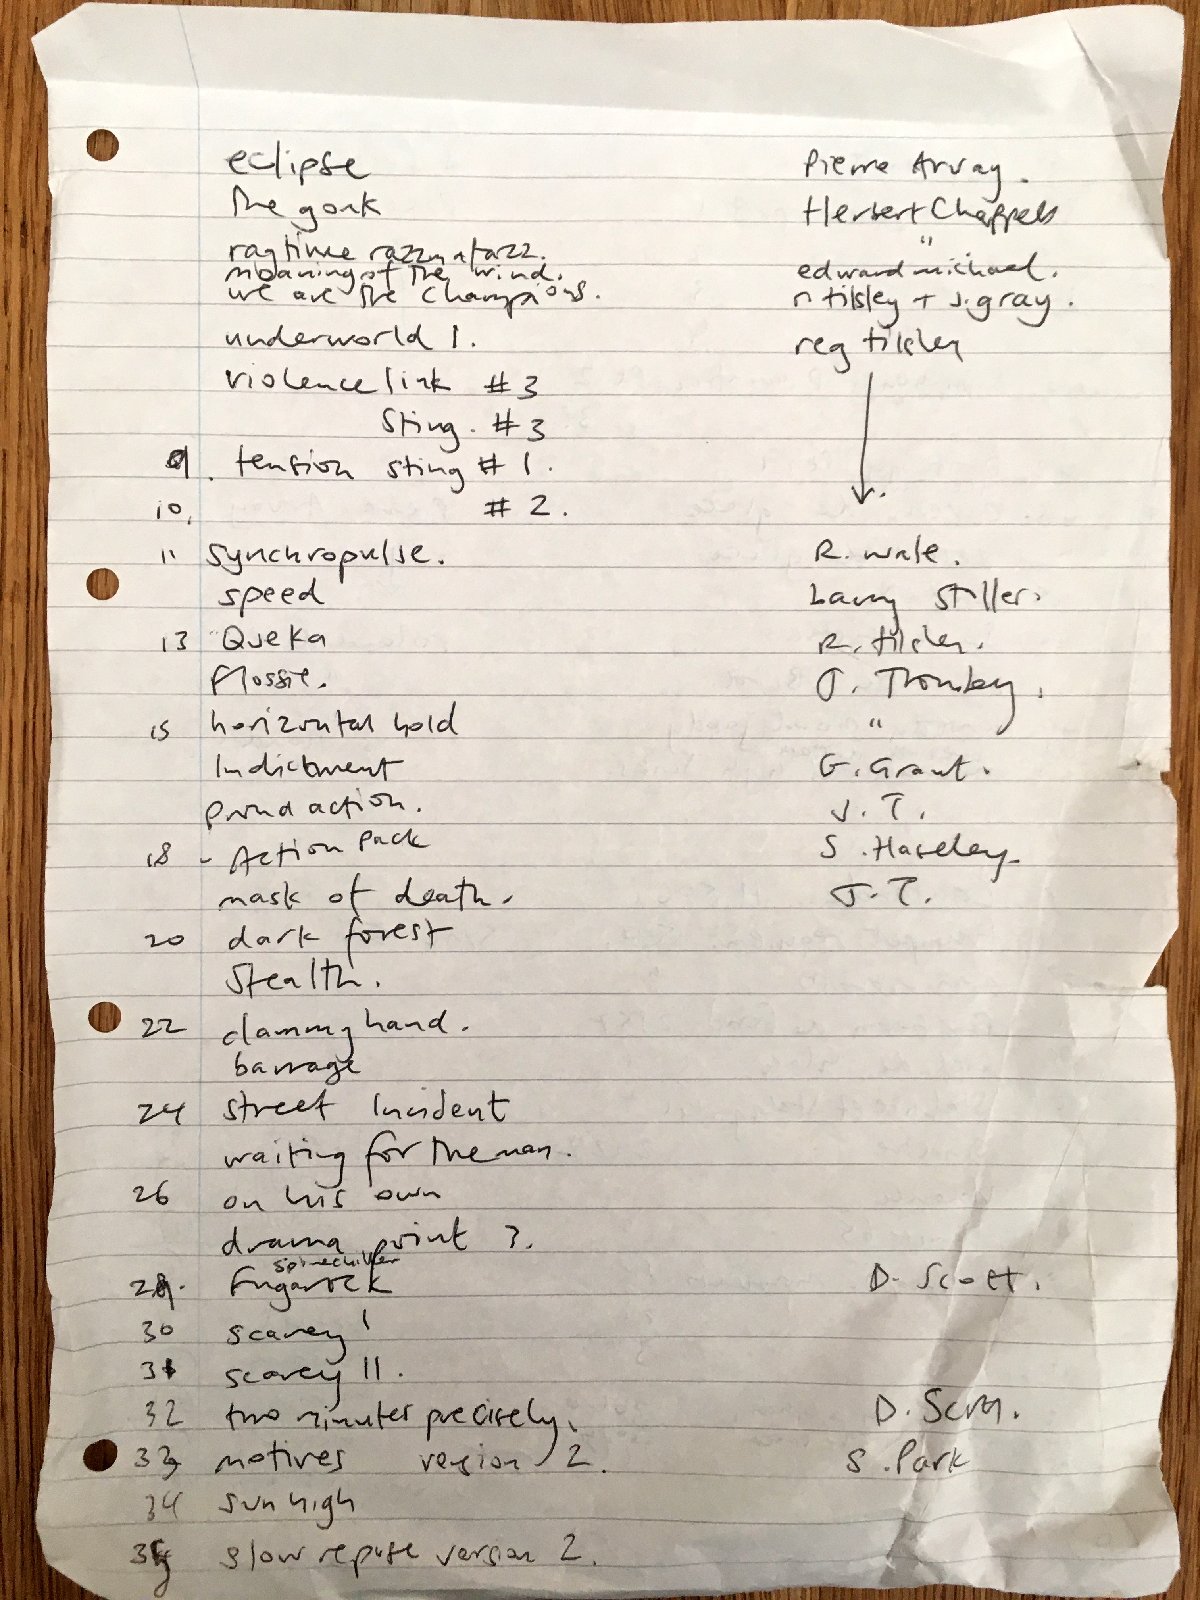 eclipse Pierre Arvay.
The gonk Herbert Chappell
ragtime razzmatazz. "
moaning of the wind. edward michael.
we are the champions. r tilsley + J. gray.
underworld 1. reg tilsley
violence link #3
Sting. #3
9. tension sting #1.
10. #2.
11 synchropulse. R. wale.
speed Barry Stiller.
13 Queka R. tilsley.
Flossie. J. Trombey.
15 horizontal hold "
Indictment G. Grant.
proud action. J. T.
18 - Action Pack S. Haseley.
mask of death. J. T.
20 dark forest
Stealth.
22 clammy hand.
barrage
24 street Incident
waiting for the man.
26 on his own
drama point 3.
spinechiller
29. Fugarock D. Scott.
30 scarey 1
31 scarey 11.
32 two minutes precisely. D. Scott.
33 motives version 2. S. Park
34 sun high
35 slow repute version 2.